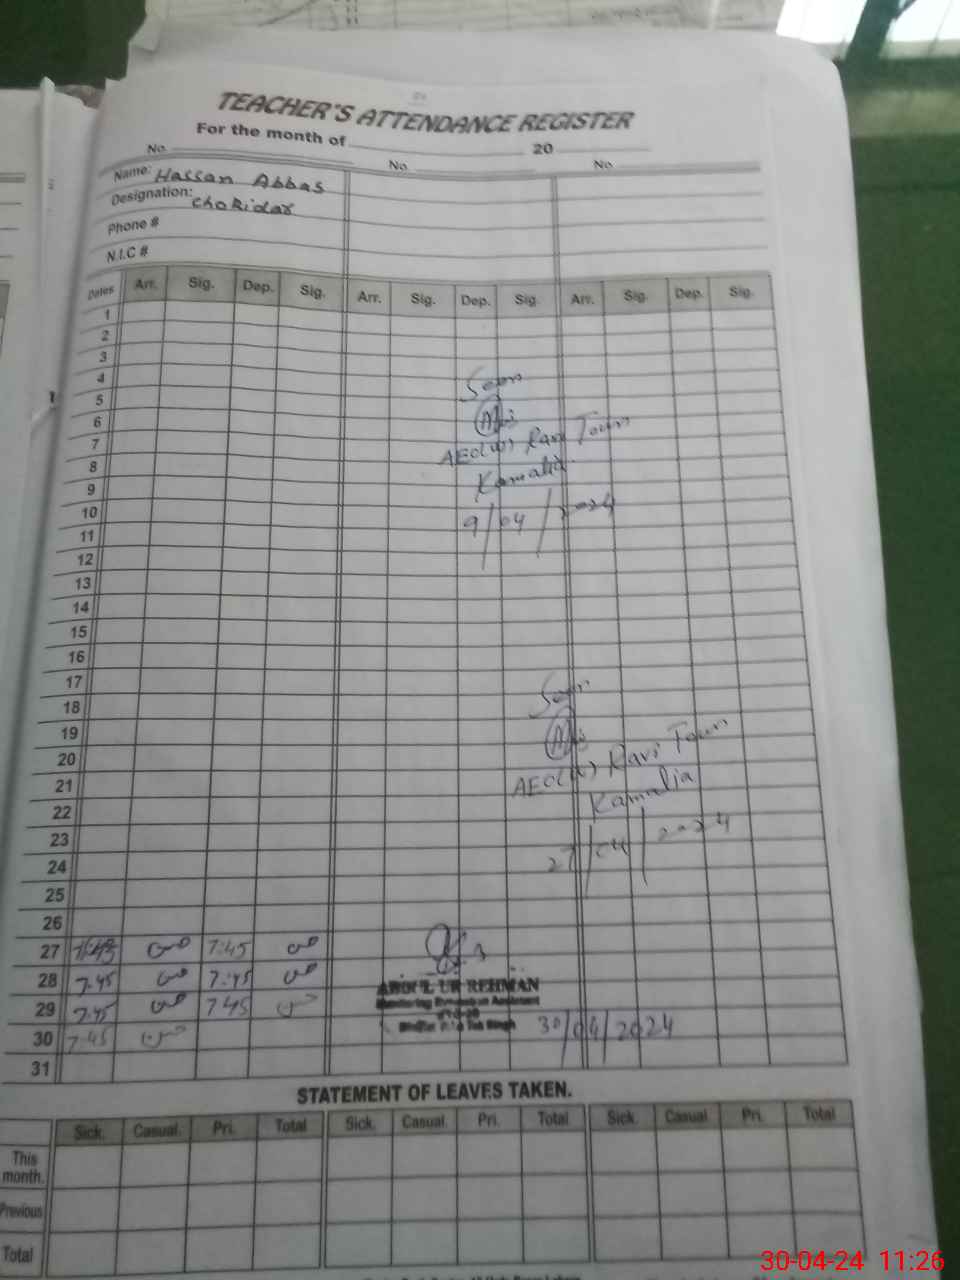 TEACHER'S ATTENDANCE REGISTER
For the month of 20
No. No. No.
Name: Hassan Abbas
Designation: Chokidar
Phone #
N.I.C #
Dates Arr. Sig. Dep. Sig. Arr. Sig. Dep. Sig. Arr. Sig. Dep. Sig.
1
2
3
4
Seen
5
6
7
AEO(W) Ravi Town
8
Kamalia
9
10
9/04/2024
11
12
13
14
15
16
17
Seen
18
19
20
AEO(W) Ravi Town
21
Kamalia
22
23
27/04/2024
24
25
26
27 7:45 7:45
28 7.45 7:45
ABDUL UR REHMAN
29 7:45 7 45
30 7-45
30/04/2024
31
STATEMENT OF LEAVES TAKEN.
Sick. Casual. Pri. Total Sick. Casual. Pri. Total Sick. Casual Pri. Total
This
month.
Previous
Total
30-04-24 11:26